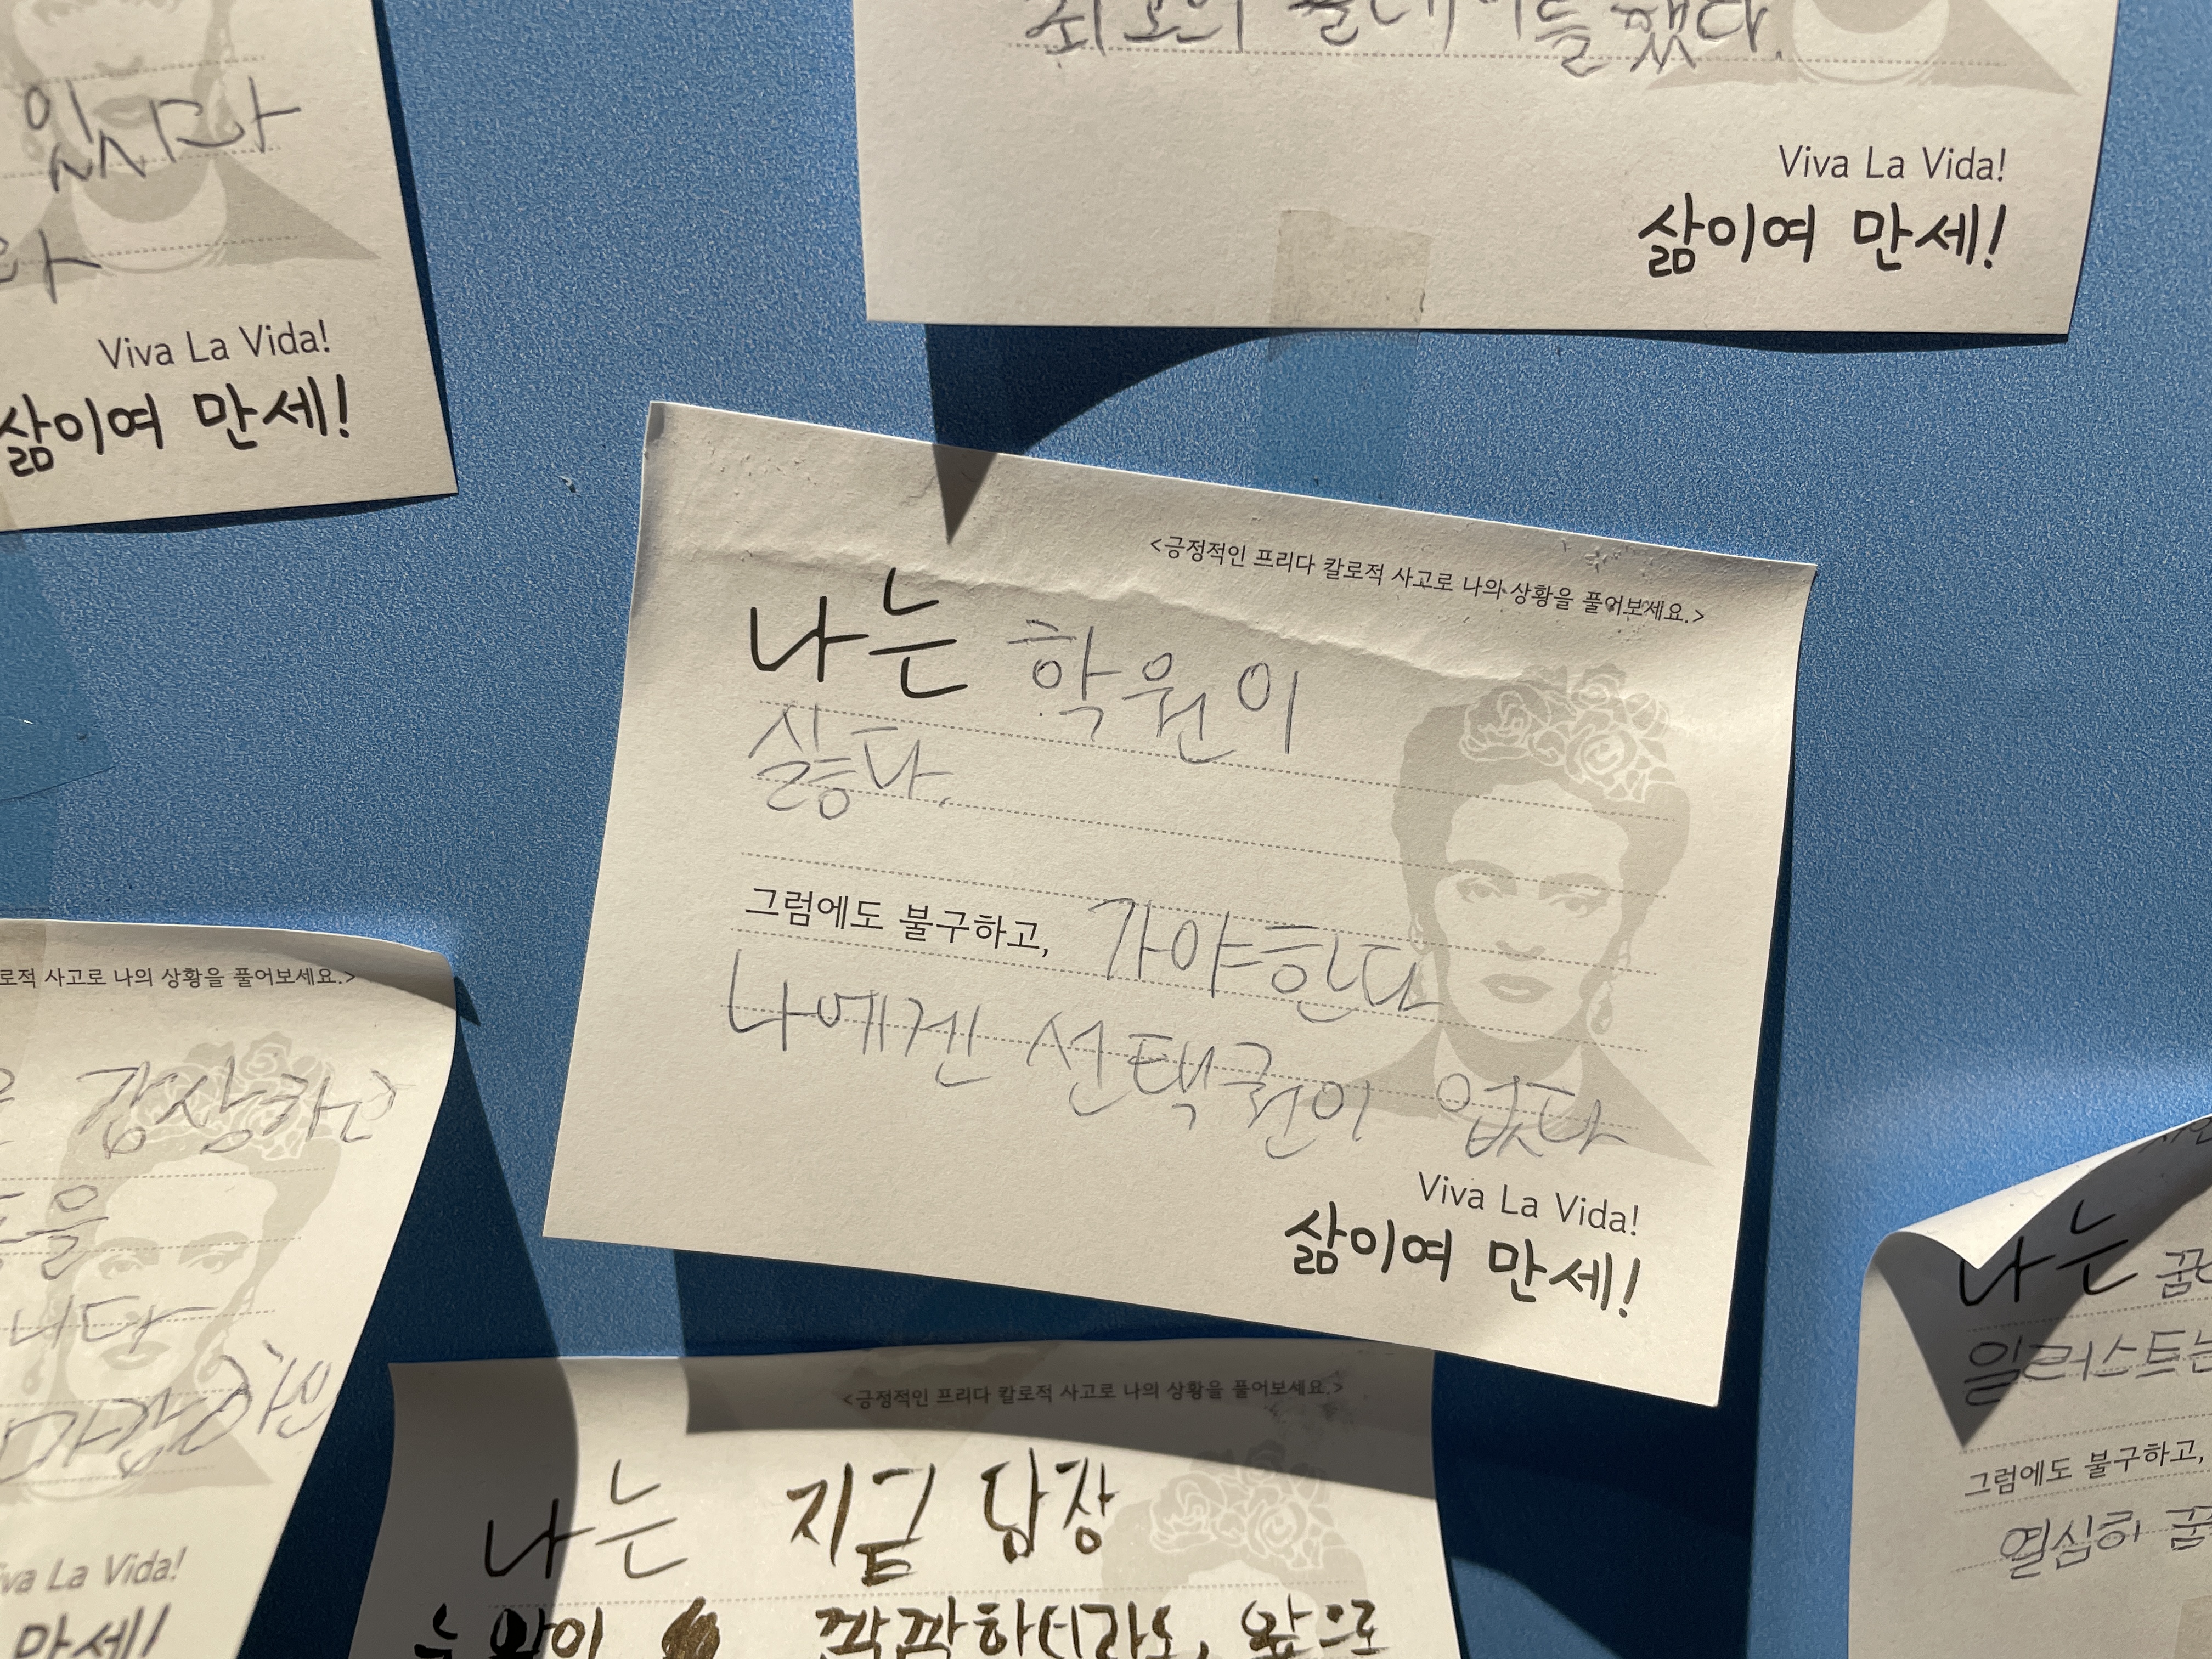 있시다
Viva La Vida!
삶이여 만세!
했다.
Viva La Vida!
삶이여 만세!
<긍정적인 프리다 칼로적 사고로 나의 상황을 풀어보세요.>
나는 학원이
싫다.
그럼에도 불구하고, 가야한다
나에겐 선택권이 없다
Viva La Vida!
삶이여 만세!
사고로 나의 상황을 풀어보세요.>
감상하고
La Vida!
만세!
<긍정적인 프리다 칼로적 사고로 나의 상황을 풀어보세요.>
나는 지금 당장
깜깜하더라도, 앞으로
나는
일러스트는
그럼에도 불구하고,
열심히